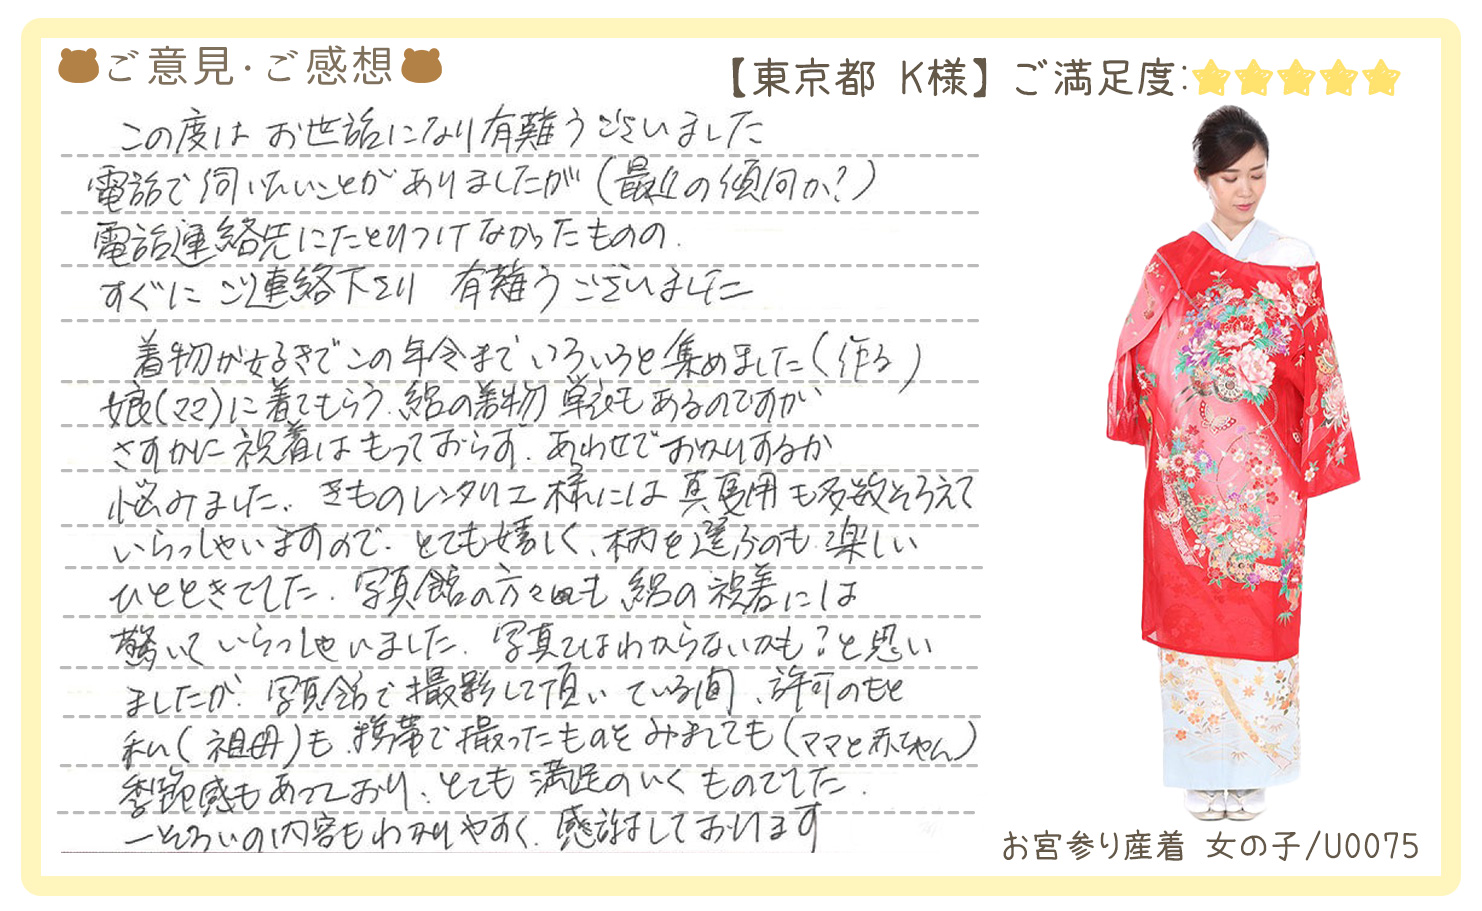 ご意見・ご感想
【東京都 K様】ご満足度:
この度は お世話になり有難うございました
電話で伺いたいことがありましたが(最近の傾向か?)
電話連絡先にたどりつけなかったものの.
すぐに ご連絡下さり 有難うございました
着物が好きでこの年令までいろいろと集めました(作る)
娘(ママ)に着てもらう.絽の着物 単衣もあるのですが
さすがに祝着はもっておらず.あわせでお参りするか
悩みました.きものレンタリエ様には真夏用も多数そろえて
いらっしゃいますので.とても嬉しく、柄を選ぶのも楽しい
ひとときでした.写真館の方々も 絽の祝着には
驚いていらっしゃいました.写真ではわからないかも?と思い
ましたが.写真館で撮影して頂いている間、許可のもと
私(祖母)も携帯で撮ったものをみましても(ママと赤ちゃん)
季節感もあっており、とても満足のいくものでした.
一そろいの内容もわかりやすく.感謝しております
お宮参り産着 女の子/U0075